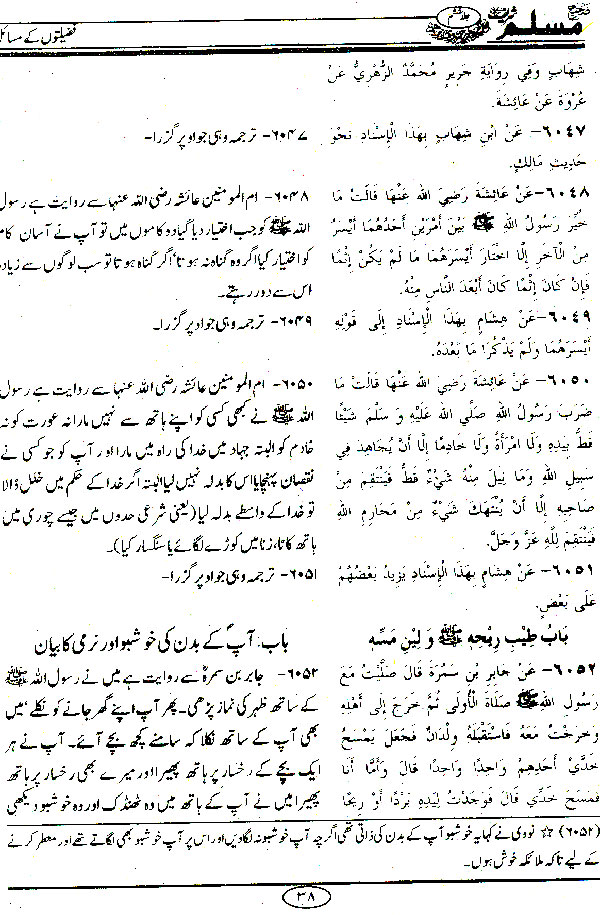 صحیح مسلم شریف
جلد ششم
فضیلتوں کے مسائل
شِهَابٍ وَفِي رِوَايَةِ جَرِيرٍ مُحَمَّدٌ الزُّهْرِيُّ عَنْ
عُرْوَةَ عَنْ عَائِشَةَ.
٦٠٤٧- عَنْ ابْنِ شِهَابٍ بِهَذَا الْإِسْنَادِ نَحْوَ
حَدِيثِ مَالِكٍ.
٦٠٤٨-عَنْ عَائِشَةَ رَضِيَ الله عَنْهَا قَالَتْ مَا
خُيِّرَ رَسُولُ اللهِ ﷺ بَيْنَ أَمْرَيْنِ أَحَدُهُمَا أَيْسَرُ
مِنْ الْآخَرِ إِلَّا اخْتَارَ أَيْسَرَهُمَا مَا لَمْ يَكُنْ إِثْمًا
فَإِنْ كَانَ إِثْمًا كَانَ أَبْعَدَ النَّاسِ مِنْهُ.
٦٠٤٩-عَنْ هِشَامٍ بِهَذَا الْإِسْنَادِ إِلَى قَوْلِهِ
أَيْسَرَهُمَا وَلَمْ يَذْكُرَا مَا بَعْدَهُ.
٦٠٥٠- عَنْ عَائِشَةَ رَضِيَ الله عَنْهَا قَالَتْ مَا
ضَرَبَ رَسُولُ اللهِ صَلَّى الله عَلَيْهِ وَ سَلَّمَ شَيْئًا
قَطُّ بِيَدِهِ وَلَا امْرَأَةً وَلَا خَادِمًا إِلَّا أَنْ يُجَاهِدَ فِي
سَبِيلِ اللهِ وَمَا نِيلَ مِنْهُ شَيْءٌ قَطُّ فَيَنْتَقِمَ مِنْ
صَاحِبِهِ إِلَّا أَنْ يُنْتَهَكَ شَيْءٌ مِنْ مَحَارِمِ اللهِ
فَيَنْتَقِمَ لِلَّهِ عَزَّ وَجَلَّ.
٦٠٥١- عَنْ هِشَامٍ بِهَذَا الْإِسْنَادِ يَزِيدُ بَعْضُهُمْ
عَلَى بَعْضٍ.
بَابُ طِيْبِ رِيْحِهِ ﷺ وَ لِيْنِ مَسِّهِ
٦٠٥٢- عَنْ جَابِرِ بْنِ سَمُرَةَ قَالَ صَلَّيْتُ مَعَ
رَسُولِ اللهِ ﷺ صَلَاةَ الْأُولَى ثُمَّ خَرَجَ إِلَى أَهْلِهِ
وَخَرَجْتُ مَعَهُ فَاسْتَقْبَلَهُ وِلْدَانٌ فَجَعَلَ يَمْسَحُ
خَدَّيْ أَحَدِهِمْ وَاحِدًا وَاحِدًا قَالَ وَأَمَّا أَنَا
فَمَسَحَ خَدِّي قَالَ فَوَجَدْتُ لِيَدِهِ بَرْدًا أَوْ رِيحًا
۶۰۴۷- ترجمہ وہی جو اوپر گزرا۔
۶۰۴۸- ام المومنین عائشہ رضی اللہ عنہا سے روایت ہے رسول
اللہ ﷺ کو جب اختیار دیا گیا دو کاموں میں تو آپ نے آسان کام
کو اختیار کیا اگر وہ گناہ نہ ہوتا' اگر گناہ ہوتا تو سب لوگوں سے زیادہ
اس سے دور رہتے۔
۶۰۴۹- ترجمہ وہی جو اوپر گزرا۔
۶۰۵۰- ام المومنین عائشہ رضی اللہ عنہا سے روایت ہے رسول
اللہ ﷺ نے کبھی کسی کو اپنے ہاتھ سے نہیں مارا نہ عورت کو نہ
خادم کو البتہ جہاد میں خدا کی راہ میں مارا اور آپ کو جو کسی نے
نقصان پہنچایا اس کا بدلہ نہیں لیا البتہ اگر خدا کے حکم میں خلل ڈالا
تو خدا کے واسطے بدلہ لیا (یعنی شرعی حدوں میں جیسے چوری میں
ہاتھ کاٹا، زنا میں کوڑے لگائے یا سنگسار کیا)۔
۶۰۵۱- ترجمہ وہی جو اوپر گزرا۔
باب: آپ کے بدن کی خوشبو اور نرمی کا بیان
۶۰۵۲- جابر بن سمرہ سے روایت ہے میں نے رسول اللہ ﷺ
کے ساتھ ظہر کی نماز پڑھی۔ پھر آپ اپنے گھر جانے کو نکلے' میں
بھی آپ کے ساتھ نکلا کہ سامنے کچھ بچے آئے۔ آپ نے ہر
ایک بچے کے رخسار پر ہاتھ پھیرا اور میرے بھی رخسار پر ہاتھ
پھیرا میں نے آپ کے ہاتھ میں وہ ٹھنڈک اور وہ خوشبو دیکھی
(۶۰۵۲) ☆ نووی نے کہا یہ خوشبو آپ کے بدن کی ذاتی تھی اگرچہ آپ خوشبو نہ لگا ویں اور اس پر آپ خوشبو بھی لگاتے تھے اور معطر کرنے
کے لیے تاکہ ملائکہ خوش ہوں۔
۳۸